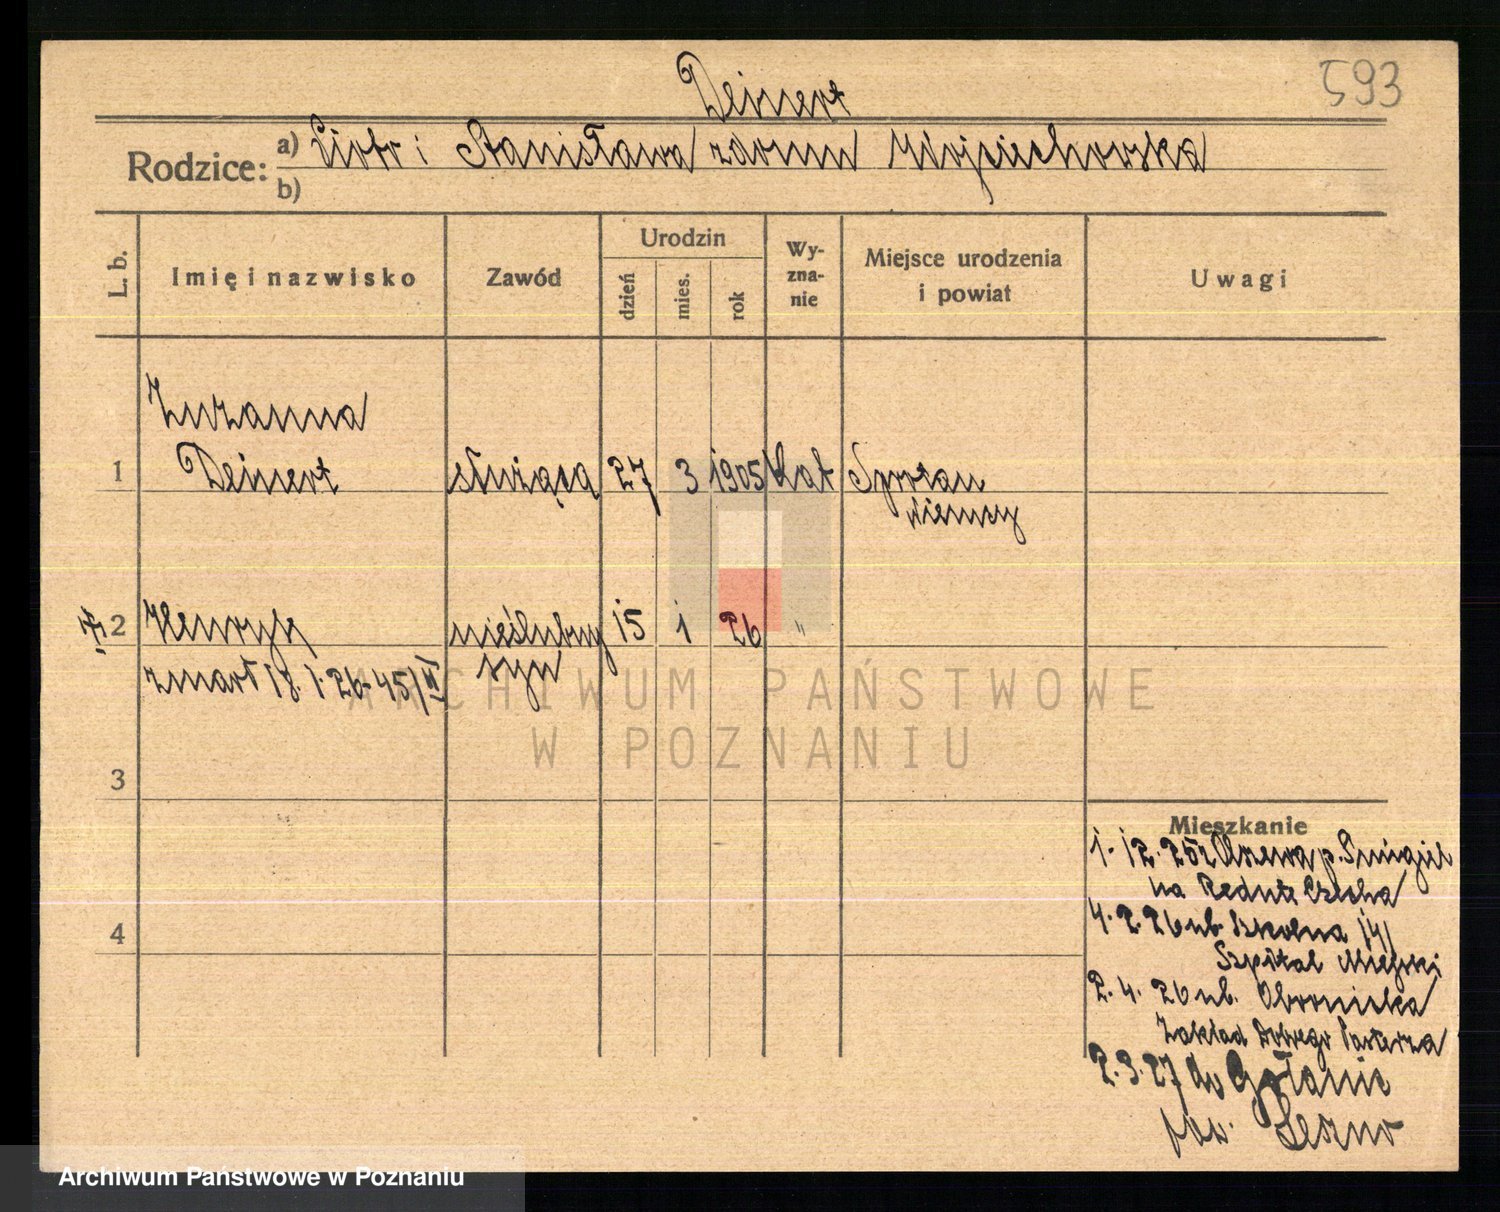 593
Deinert
Rodzice: a) Piotr i Stanisława z domu Wojciechowska
b)
L. b.
Imię i nazwisko
Zawód
Urodzin
dzień
mies.
rok
Wy-
zna-
nie
Miejsce urodzenia
i powiat
Uwagi
Zuzanna
1 Deinert służąca 27 3 1905 Kat Sprotau
Niemcy
2 Henryk nieślubny 15 1 26 "
zmarł 18.1.26-45/II syn
3
4
Mieszkanie
1.12.25 z p. Śmigiel
na Reducie Czecha
4.2.26 ub. Szkolna 14/
Szpital Miejski
2.4.26 ub. Obornicka
Zakład Dobrego Pasterza
2.3.27 do
pow. Leszno
ARCHIWUM PAŃSTWOWE
W POZNANIU
Archiwum Państwowe w Poznaniu